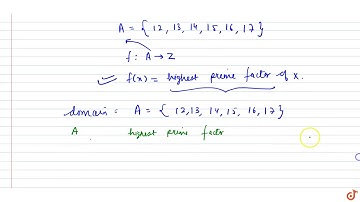 A = { 12, 13, 14, 15, 16, 17 }
f : A → Z
✓ f(x) = highest prime factor of x.
domain = A = { 12, 13, 14, 15, 16, 17 }
A highest prime factor